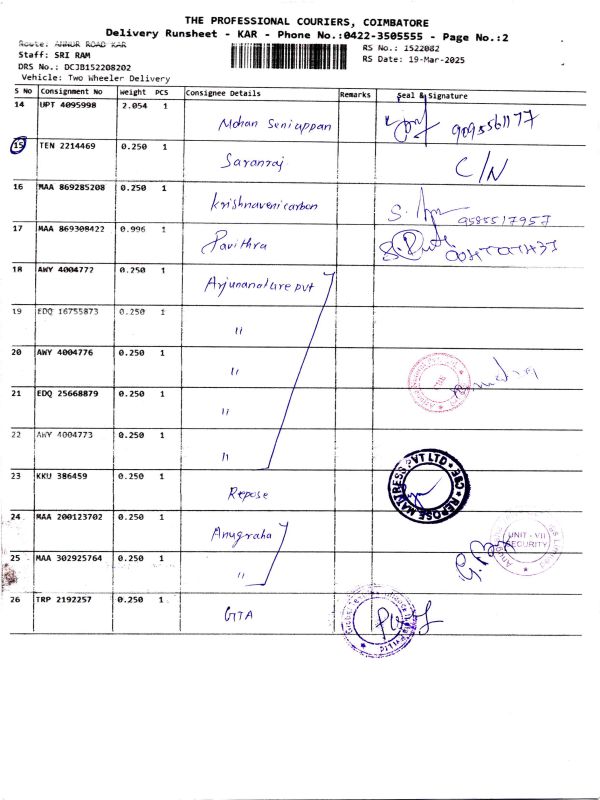 THE PROFESSIONAL COURIERS, COIMBATORE
Delivery Runsheet - KAR - Phone No.:0422-3505555 - Page No.:2
Route: ANNUR ROAD KAR
RS No.: 1522082
Staff: SRI RAM
RS Date: 19-Mar-2025
DRS No.: DCJB152208202
Vehicle: Two Wheeler Delivery
S No Consignment No Weight PCS Consignee Details Remarks Seal & Signature
14 UPT 4095998 2.054 1 Mohan Seniappan
15 TEN 2214469 0.250 1 Saranraj C/N
16 MAA 869285208 0.250 1 Krishnaveni carbon 9585517957
17 MAA 869308422 0.996 1 Pavithra
18 AWY 4004772 0.250 1 Arjunanature pvt
19 EDQ 16755873 0.250 1 "
20 AWY 4004776 0.250 1 "
21 EDQ 25668879 0.250 1 "
22 AWY 4004773 0.250 1 "
23 KKU 386459 0.250 1 Repose REPOSE MATTRESS PVT LTD
24 MAA 200123702 0.250 1 Anugraha UNIT - VII SECURITY
25 MAA 302925764 0.250 1 "
26 TRP 2192257 0.250 1 GTA